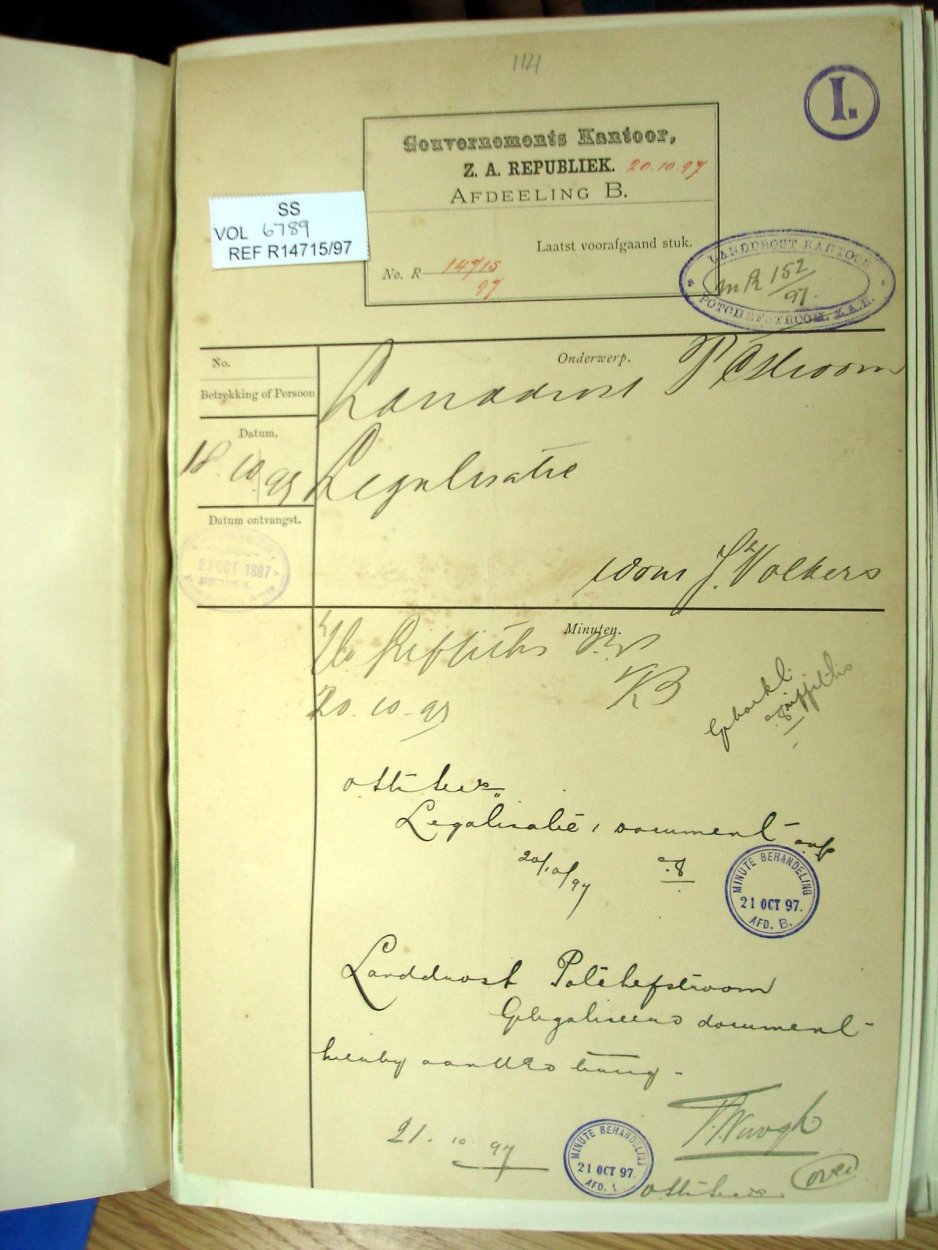 1141
I.
Gouvernements Kantoor,
Z. A. REPUBLIEK. 20.10.97
AFDEELING B.
SS
VOL 6789
REF R14715/97
Laatst voorafgaand stuk.
No. R 14715
97
LANDDROST KANTOOR
R 152
/97.
POTCHEFSTROOM, Z.A.R.
No.
Onderwerp.
Betrekking of Persoon
Landdrost P Stroom
Datum.
18 10 97
Legalisatie
Datum ontvangst.
20 OCT 1897
J. Volkers
Minuten.
Griffiths
20.10.97
Griffiths
Legalisatie document
20/10/97
MINUTE BEHANDELING
21 OCT 97.
AFD. B.
Landdrost Potchefstroom
Gelegaliseerd document
hierby terug.
21.10.97
MINUTE BEHANDELING
21 OCT 97.
AFD.
over